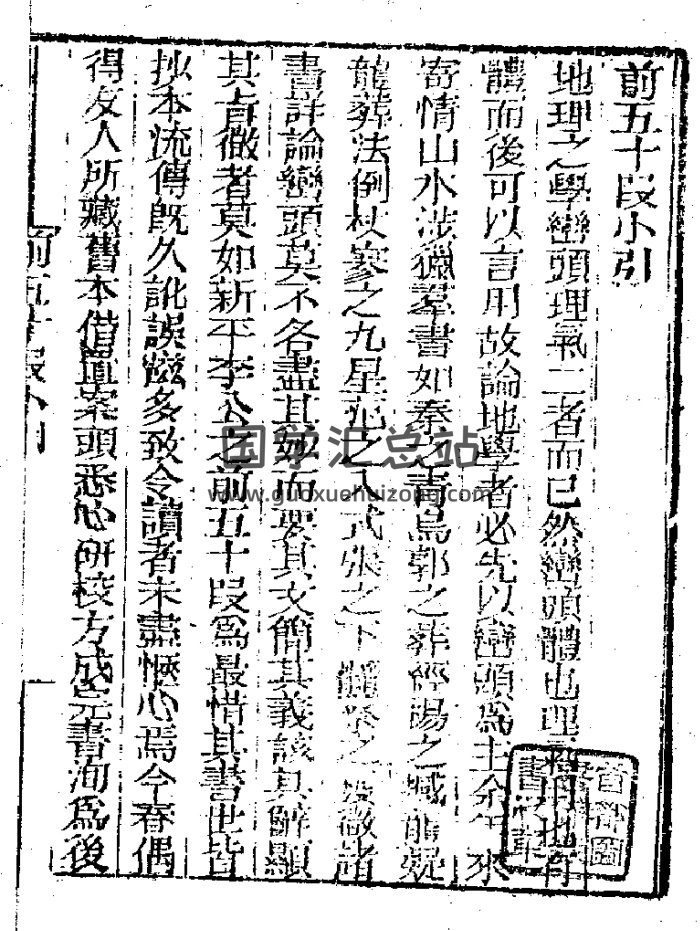 前五十段小引
地理之學巒頭理氣二者而已然巒頭體也理氣用也有
體而後可以言用故論地學者必先以巒頭爲主余年來
寄情山水涉獵羣書如秦之青烏郭之葬經楊之撼龍疑
龍葬法倒杖寥之九星范之入式張之下 諸
書詳論巒頭莫不各盡其妙而要其文簡其義該其辭顯
其旨徹者莫如新平李公之前五十段爲最惜其書世皆
抄本流傳既久訛誤茲多致令讀者未盡愜心焉今春偶
得友人所藏舊本借置案頭悉心研校方成完書洵爲後
前五十段小引
国学汇总站
www.guoxuehuizong.com
首都圖
書